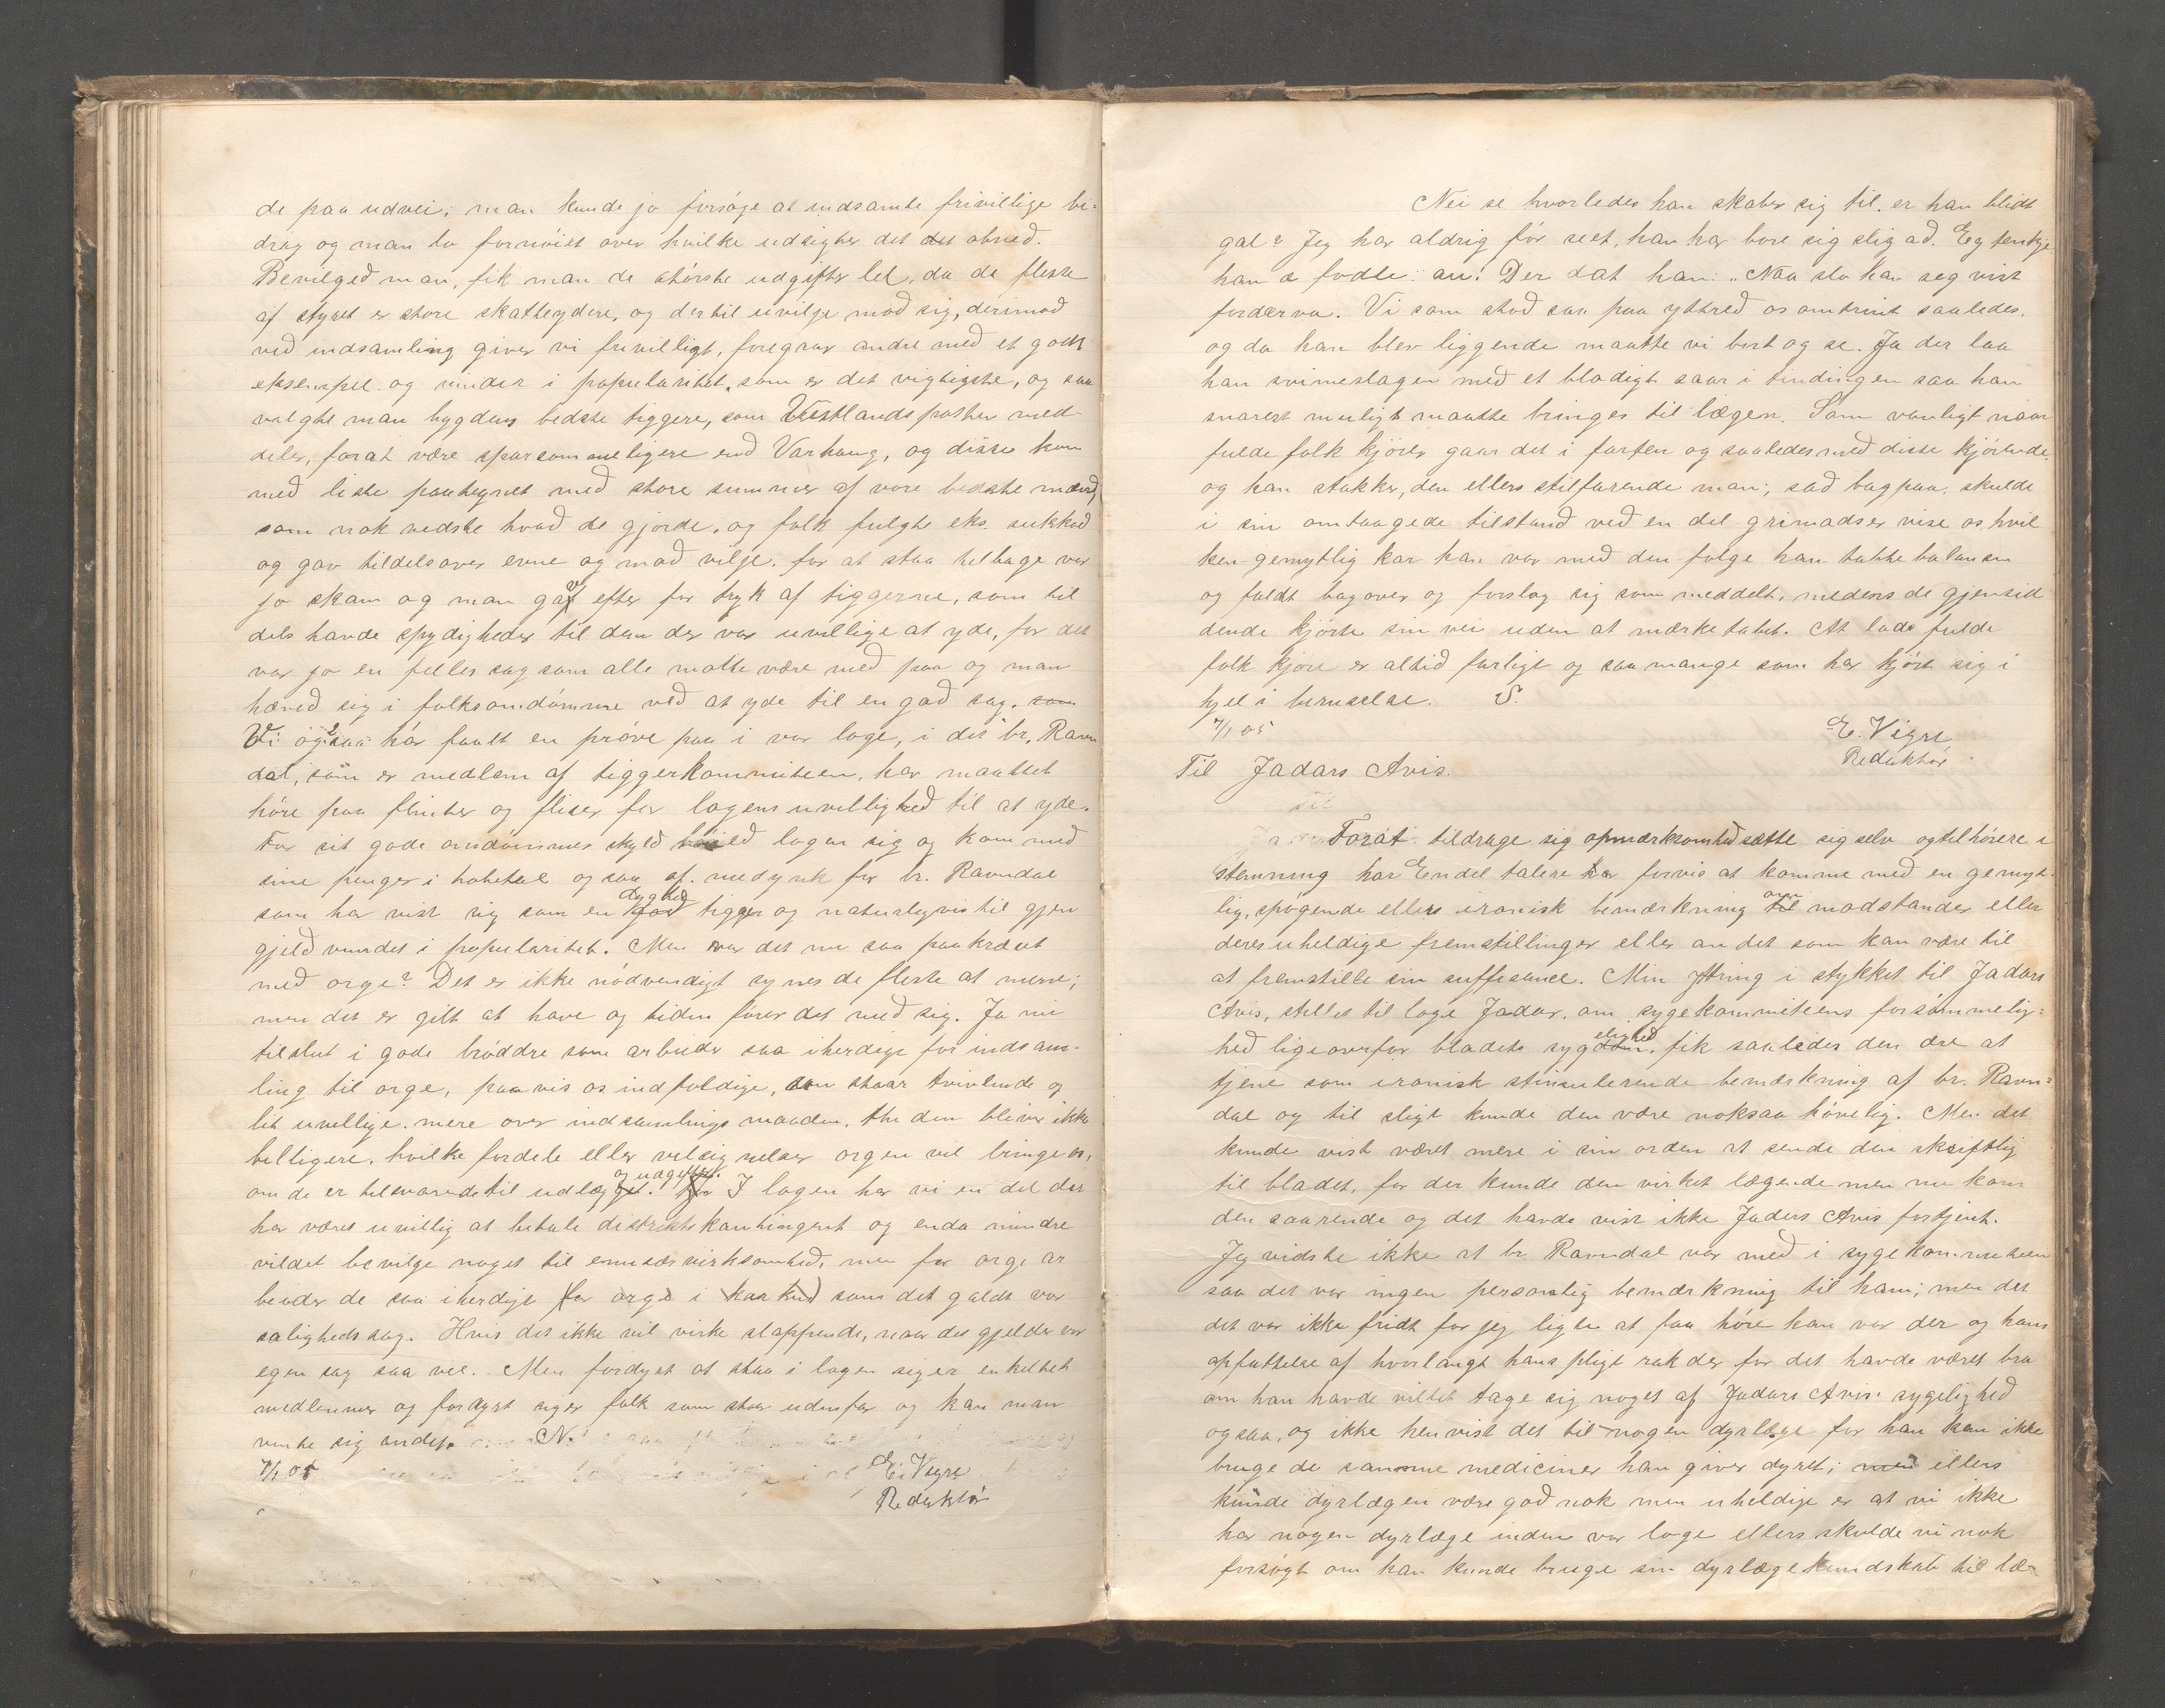 de paa udvei; man kunde jo forsøge at indsamle frivillige bi-
drag og man lo fornøiet over hvilke udsigter det det abned.
Bevilged man, fik man de største udgifter lel, da de fleste
af styret er store skatteydere, og dertil uvilje mod sig, derimod
ved indsamling giver vi frivilligt, foregaar andre med et godt
eksempel og vinder i popularitet, som er det vigtigste, og saa
valgte man bygdens bedste tiggere, som Vestlandsposten med-
deler, forat være sparsommeligere end Varhaug, og disse kom
med liste paategnet med store summer af vore bedste mænd,
som nok vedste hvad de gjorde, og folk fulgte eks. sukkad
og gav tildels over evne og mod vilje, for at staa tilbage var
jo skam og man gav efter for tryk af tiggerne, som til
dels havde spydigheder til dem der var uvillige at yde, for det
var jo en felles sag som alle matte være med paa og man
hæved sig i folksomdømme ved at yde til en god sag. som
Vi ogsaa har faalt en prøve paa i vor loge, i det br. Ravn
dal, som er medlem af tiggerkommiteen, har maattet
høre paa flinter og fliser for logens uvillighed til at yde.
For sit gode omdømmes skyld logen sig og kom med
sine penger i hobetal og saa af medynk for br. Ravndal
som har vist sig som en dygtig tigger og naturligvis til gjen
gjeld vundet i popularitet. Men var det nu saa paakrævt
med orge? Det er ikke nødvendigt synes de fleste at mene;
men det er gilt at have og tiden fører det med sig. Ja nu
tilslut i gode brøddre som arbeider saa iherdige for indsam-
ling til orge, paavis os indfoldige, som staar tvivlende og
lit uvillige mere over indsamlings maaden, the den bliver ikke
billigere, hvilke fordele eller velsignelser orgen vil bringe os,
om de er tilsvarende til udlæg og udgifter. I logen har vi en del der
har været uvillig at betale distriktskontingent og enda mindre
villdet bevilge noget til emisærvirksomhed, men for orge ar
beider de saa iherdigt (for orge i som det galdt vor
saligheds sag. Hvis det ikke vil virke slappende, naar det gjelder vor
egen sag saa vel. Men fordyrt at staa i logen siger enkeltet
medlemmer og fordyrt siger folk som staar udenfor og kan man
vente sig andet. N.
7/1 05
E. Vigre
Redaktør
Nei se hvorledes han skaber sig til. er han blidt
gal? Jeg har aldrig før seet, han har bore sig slig ad. Eg tenkje
han a fodle: an! Der dat han: „Naa slo han seg vist
forderva. Vi som stod saa paa yttred os omtrint saaledes.
og da han blev liggende maatte vi bort og se. Ja der laa
han svimeslagen med et blodigt saar i tindingen saa han
snarest muligt maatte bringes til lægen. Som vanligt naar
fulde folk kjører gaar det i farten og saaledes med disse kjørende.
og han stakker, den ellers stilfarende man, sad bagpaa, skulde
i sin omtaagede tilstand ved en del grimadser vise os hvil
ken gemytlig kar han var med den følge han tabte balansen
og faldt bagover og forslog sig som meddelt, medens de gjensid
dende kjørte sin vei uden at mærke tabet. At lade fulde
folk kjøre er altid farligt og saa mange som har kjørt sig i
hjel i beruselse. S.
7/1 05
E. Vigre
Redaktør
Til Jadars Avis.
Forat tildrage sig opmærksomhed sætte sig selv og tilhørere i
stemning har Endel talere for vis at komme med en gemyt-
lig, spøgende ellers ironisk bemærkning om modstander eller
deres uheldige fremstillinger eller an det som kan være til
at fremstille sin suffisance. Min ytring i stykket til Jadars
Avis, stillet til loge Jadar, om sygekommiteens forsømmelig-
hed ligeoverfor bladets sygelighed, fik saaledes den ære at
tjene som ironisk stimulerende bemærkning af br. Ravn-
dal og til sligt kunde den være noksaa høvelig. Men det
kunde vist været mere i sin orden at sende den skriftlig
til bladet, for der kunde den virket lægende men nu kom
den saarende og det havde vist ikke Jaders Avis fortjent.
Jeg vidste ikke at br. Ravndal var med i sygekommiteen
saa det var ingen personlig bemærkning til ham; men det
det var ikke fridt for jeg ligte at faa høre han var der og hans
opfattelse af hvorlangt hans pligt rak der for det havde været bra
om han havde villet tage sig noget af Jadars Avis. sygelighed
ogsaa, og ikke henvist det til nogen dyrlæge for han kan ikke
bruge de samme mediciner han giver dyret; men ellers
kunde dyrlægen være god nok men uheldige er at vi ikke
har nogen dyrlæge inden vor loge ellers skulde vi nok
forsøgt om han kunde bruge sin dyrlægekundskab til læ-